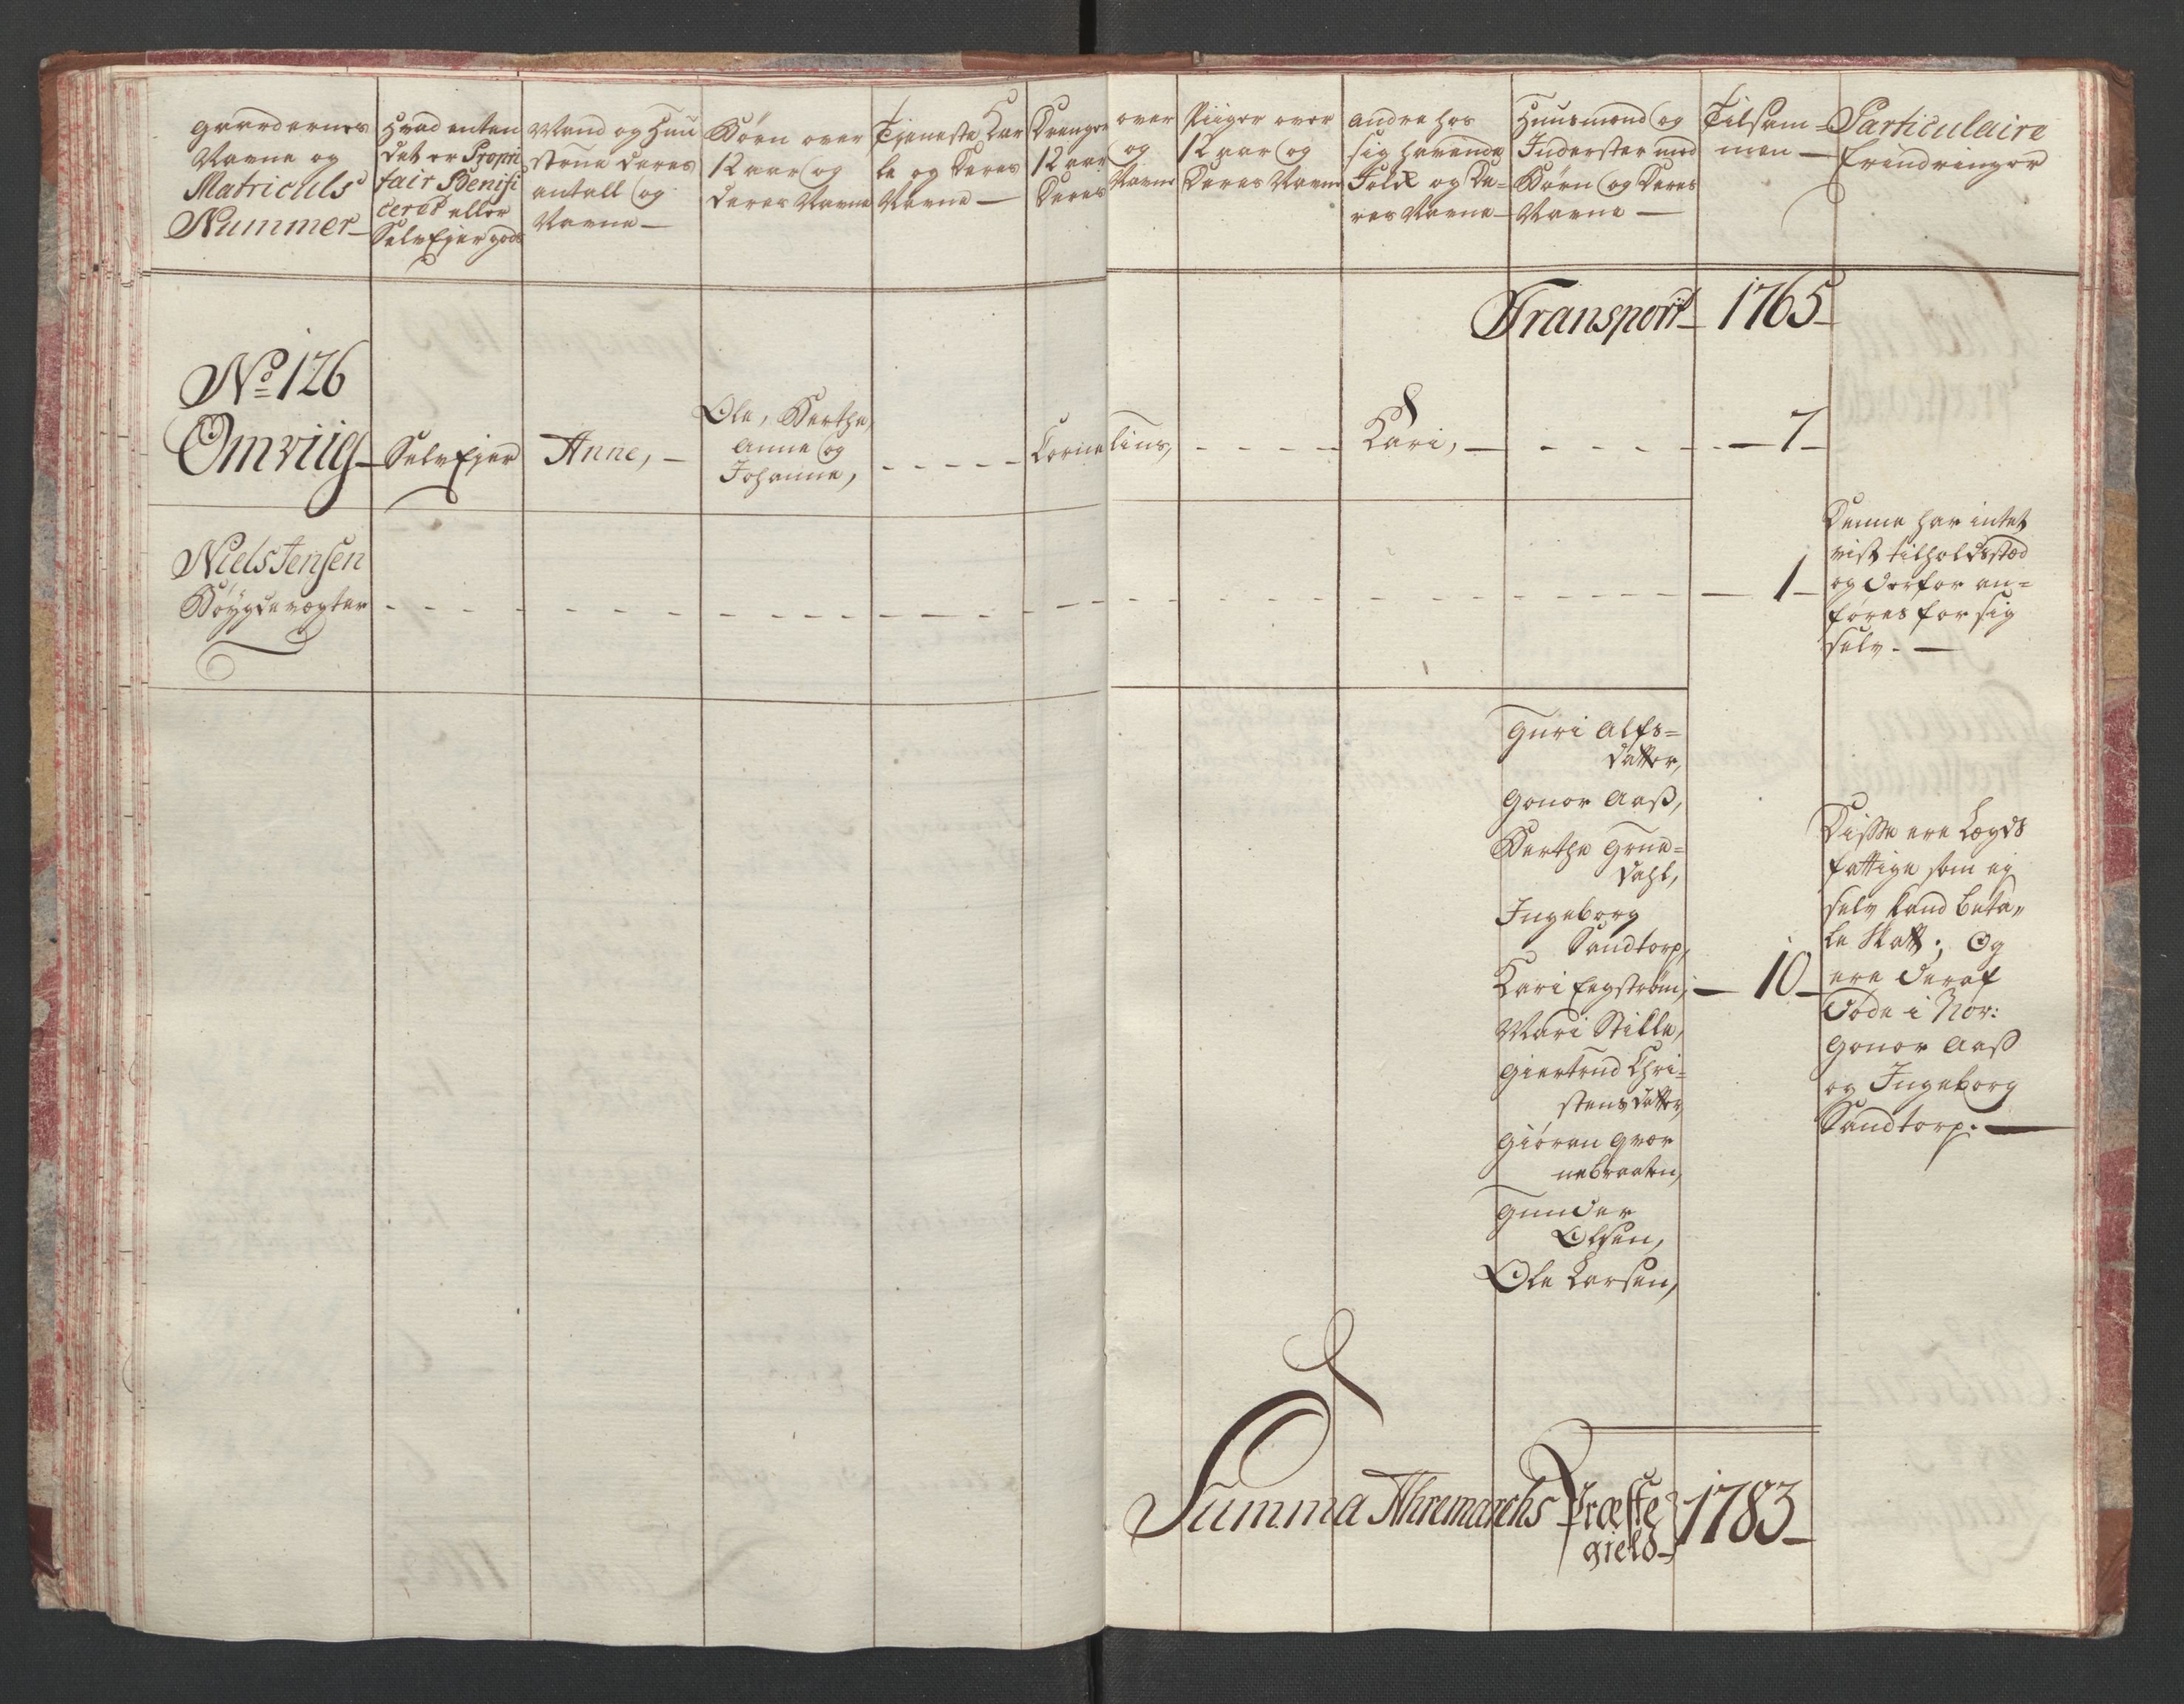 Gaardernes
Navne og
Matriculs
Nummer
Hvad enten
Det er Propri
tair Benifi
ceret eller
SelvEjer gods
Mand og Huu
struе deres
antall og
Navne
Børn over
12 aar og
deres Navne
Tjeneste Kar
le og Deres
Navne
Drenger
12 aar
Deres
over
og
Navne
Piiger over
12 aar og
Deres Navne
andre hos
sig havende
Folk og De=
res Navne
Huusmænd og
Inderster med
Børn og Deres
Navne
Tilsam=
men
Particulaire
Erindringer
Transport 1765
No 126
Omviig
SelvEjer
Anne,
Ole, Berthe,
Anne og
Johanne,
Corne
lius,
Kari,
7
Niels Jensen
Bøygdevægter
1
Denne har intet
vist tilholdsstæd
og derfor an=
føres for sig
selv.
Guri Alfs=
datter,
Gonor Aaß,
Berthe Grue=
dahl,
Ingeborg
Sandtorp,
Kari Engstrøm,
Mari Stille,
Giertrud Chri=
stensdatter,
Giøran Qvær
nebraaten,
Gunder
Olsen,
Ole Larsen,
10
Disse ere Lægds
fattige som ej
selv kand beta„
le Skatt.; Og
ere deraf
døde i Nov:
Gonor Aaß
og Ingeborg
Sandtorp.
Summa Ahremarchs Præste
gield 1783